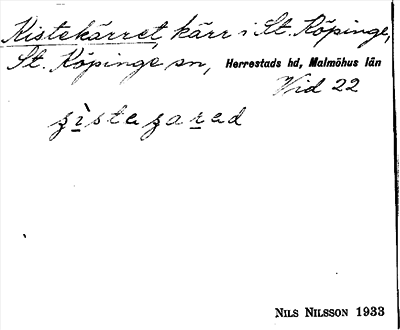 Kistekärret, kärr i St. Köpinge,
St. Köpinge sn, Herrestads hd, Malmöhus län
Vid 22
NILS NILSSON 1933